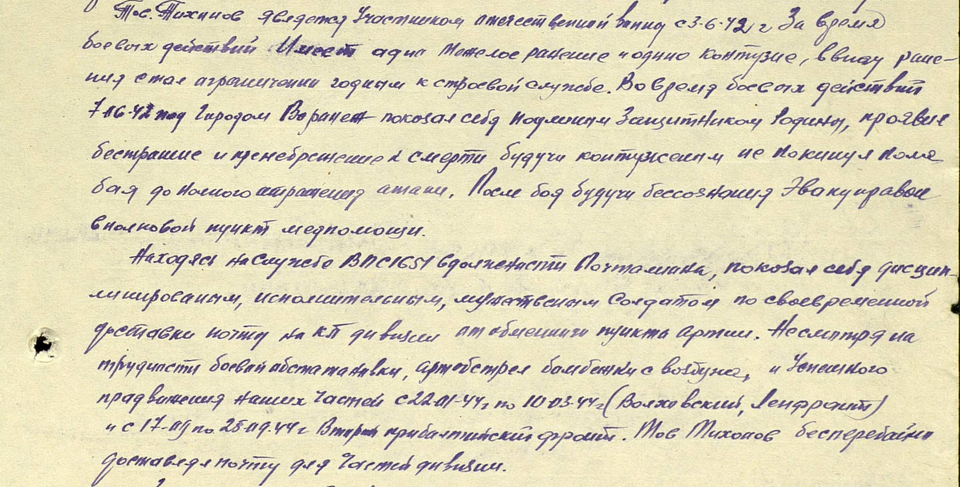 Тов. Тихонов является Участником отечественной войны с 3-6-42 г За время
боевых действий Имеет одно тяжелое ранение и одно контузие, ввиду ране-
ния стал ограниченно годным к строевой службе. Во время боевых действий
под Городом Воронеж показал себя подлинным Защитником Родины, проявив
бесстрашие и пренебрежение к смерти будучи контуженным не покинул поля
боя до полного отражения атаки. После боя будучи бессознания Эвакуирован
в полковой пункт медпомощи.
Находясь на Службе ВПС 1651 в должности Почтальона, показал себя дисцип-
линированым, исполнительным, мужественым Солдатом по своевременной
доставки почты на КП дивизии от обменного пункта Армии. Несмотря на
трудности боевой обстановки, артобстрел бомбежки с воздуха, и Успешного
продвижения наших Частей с 22-01-44г по 10-03-44г (Волховский, Ленфронт)
и с 17-09 по 25-09-44г Второй прибалтийский фронт. Тов Тихонов бесперебойно
доставлял почту для Частей дивизии.